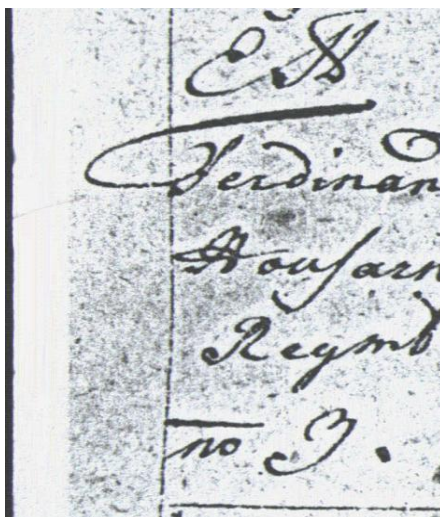 EH
Ferdinan
Housarn
Regmt
no 3.